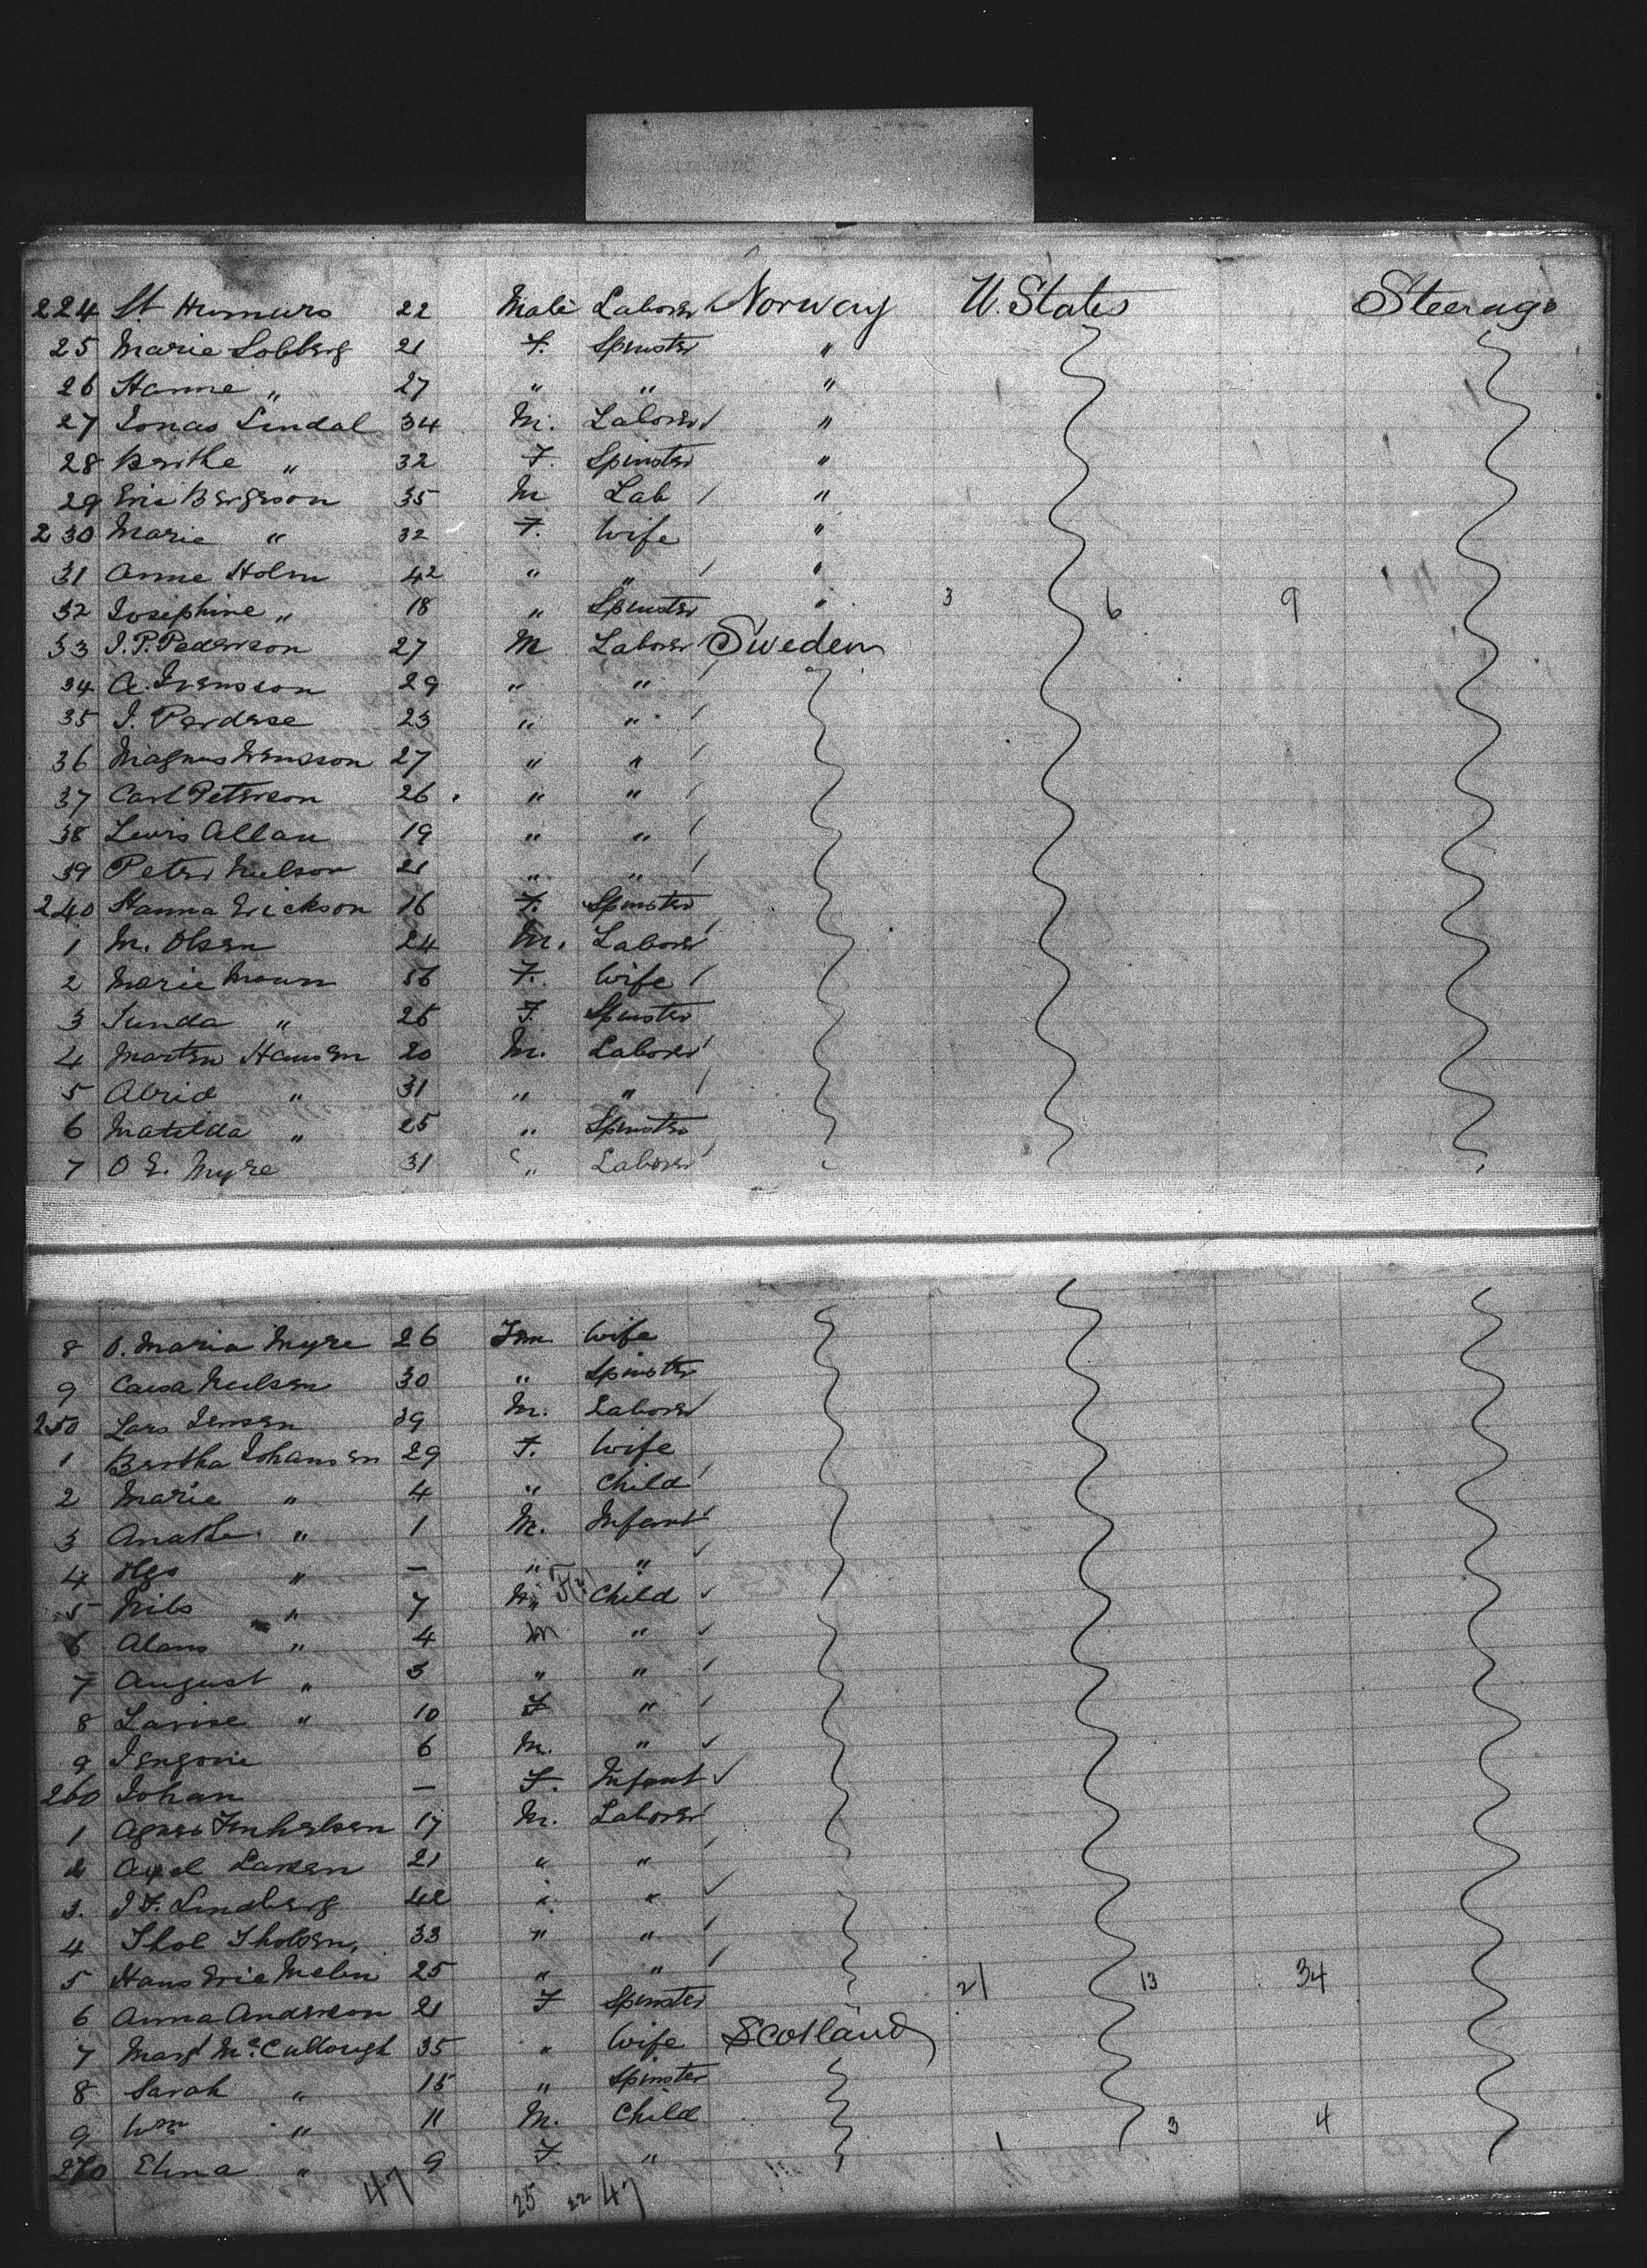 224 St. Humurs 22 Male Laborer Norway U. States Steerage
25 Marie Lobberg 21 F. Spinster "
26 Hanne " 27 " " "
27 Jonas Lindal 34 M. Laborer "
28 Berthe " 32 F. Spinster "
29 Eric Bergeson 35 M Lab "
230 Marie " 32 F. Wife "
31 Anne Holm 42 " " "
32 Josephine " 18 " Spinster " 3 6 9
33 J. P. Pederson 27 M Laborer Sweden
34 A. Ivensson 29 " "
35 J. Perdese 23 " "
36 Magnus Svensson 27 " "
37 Carl Peterson 26 " "
38 Lewis Allan 19 " "
39 Peter Nielson 21 " "
240 Hanna Erickson 16 F. Spinster
1 M. Olsen 24 M. Laborer
2 Marie Moun 56 F. Wife
3 Sunda " 26 F. Spinster
4 Marten Hansen 20 M. Laborer
5 Alrid " 31 " "
6 Matilda " 25 " Spinster
7 O E. Myre 31 " Laborer
8 O. Maria Myre 26 Fem. Wife
9 Caisa Neilsen 30 " Spinster
250 Lars Jensen 39 M. Laborer
1 Bertha Johansen 29 F. Wife
2 Marie " 4 " Child
3 Anathe " 1 M. Infant
4 Olga " — " "
5 Nils " 7 M. F(?) Child
6 Alans " 4 M "
7 August " 3 " "
8 Lavise " 10 F "
9 Jengorie 6 M. "
260 Johan — F. Infant
1 Agnes 17 M. Laborer
2 Axel Larsen 21 " "
3. J F. Lindberg 42 " "
4 Thol Tholsen, 33 " "
5 Hans Eric Melin 25 " " 21 13 34
6 Anna Anderson 21 F Spinster
7 Margt McCullough 35 " Wife Scotland
8 Sarah " 15 " Spinster
9 Wm " 11 M. Child 1 3 4
270 Elina " 9 F. "
47 25 22 47